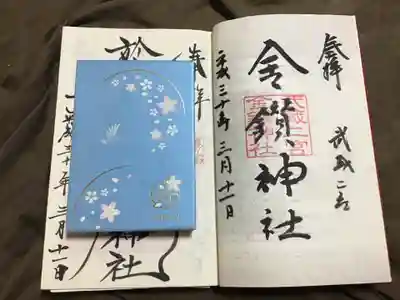 奉拝
武蔵二宮
金鑚神社
武蔵二宮
金鑚神社
平成三十年三月十一日
奉拝
於
神社
平成三十年三月十一日